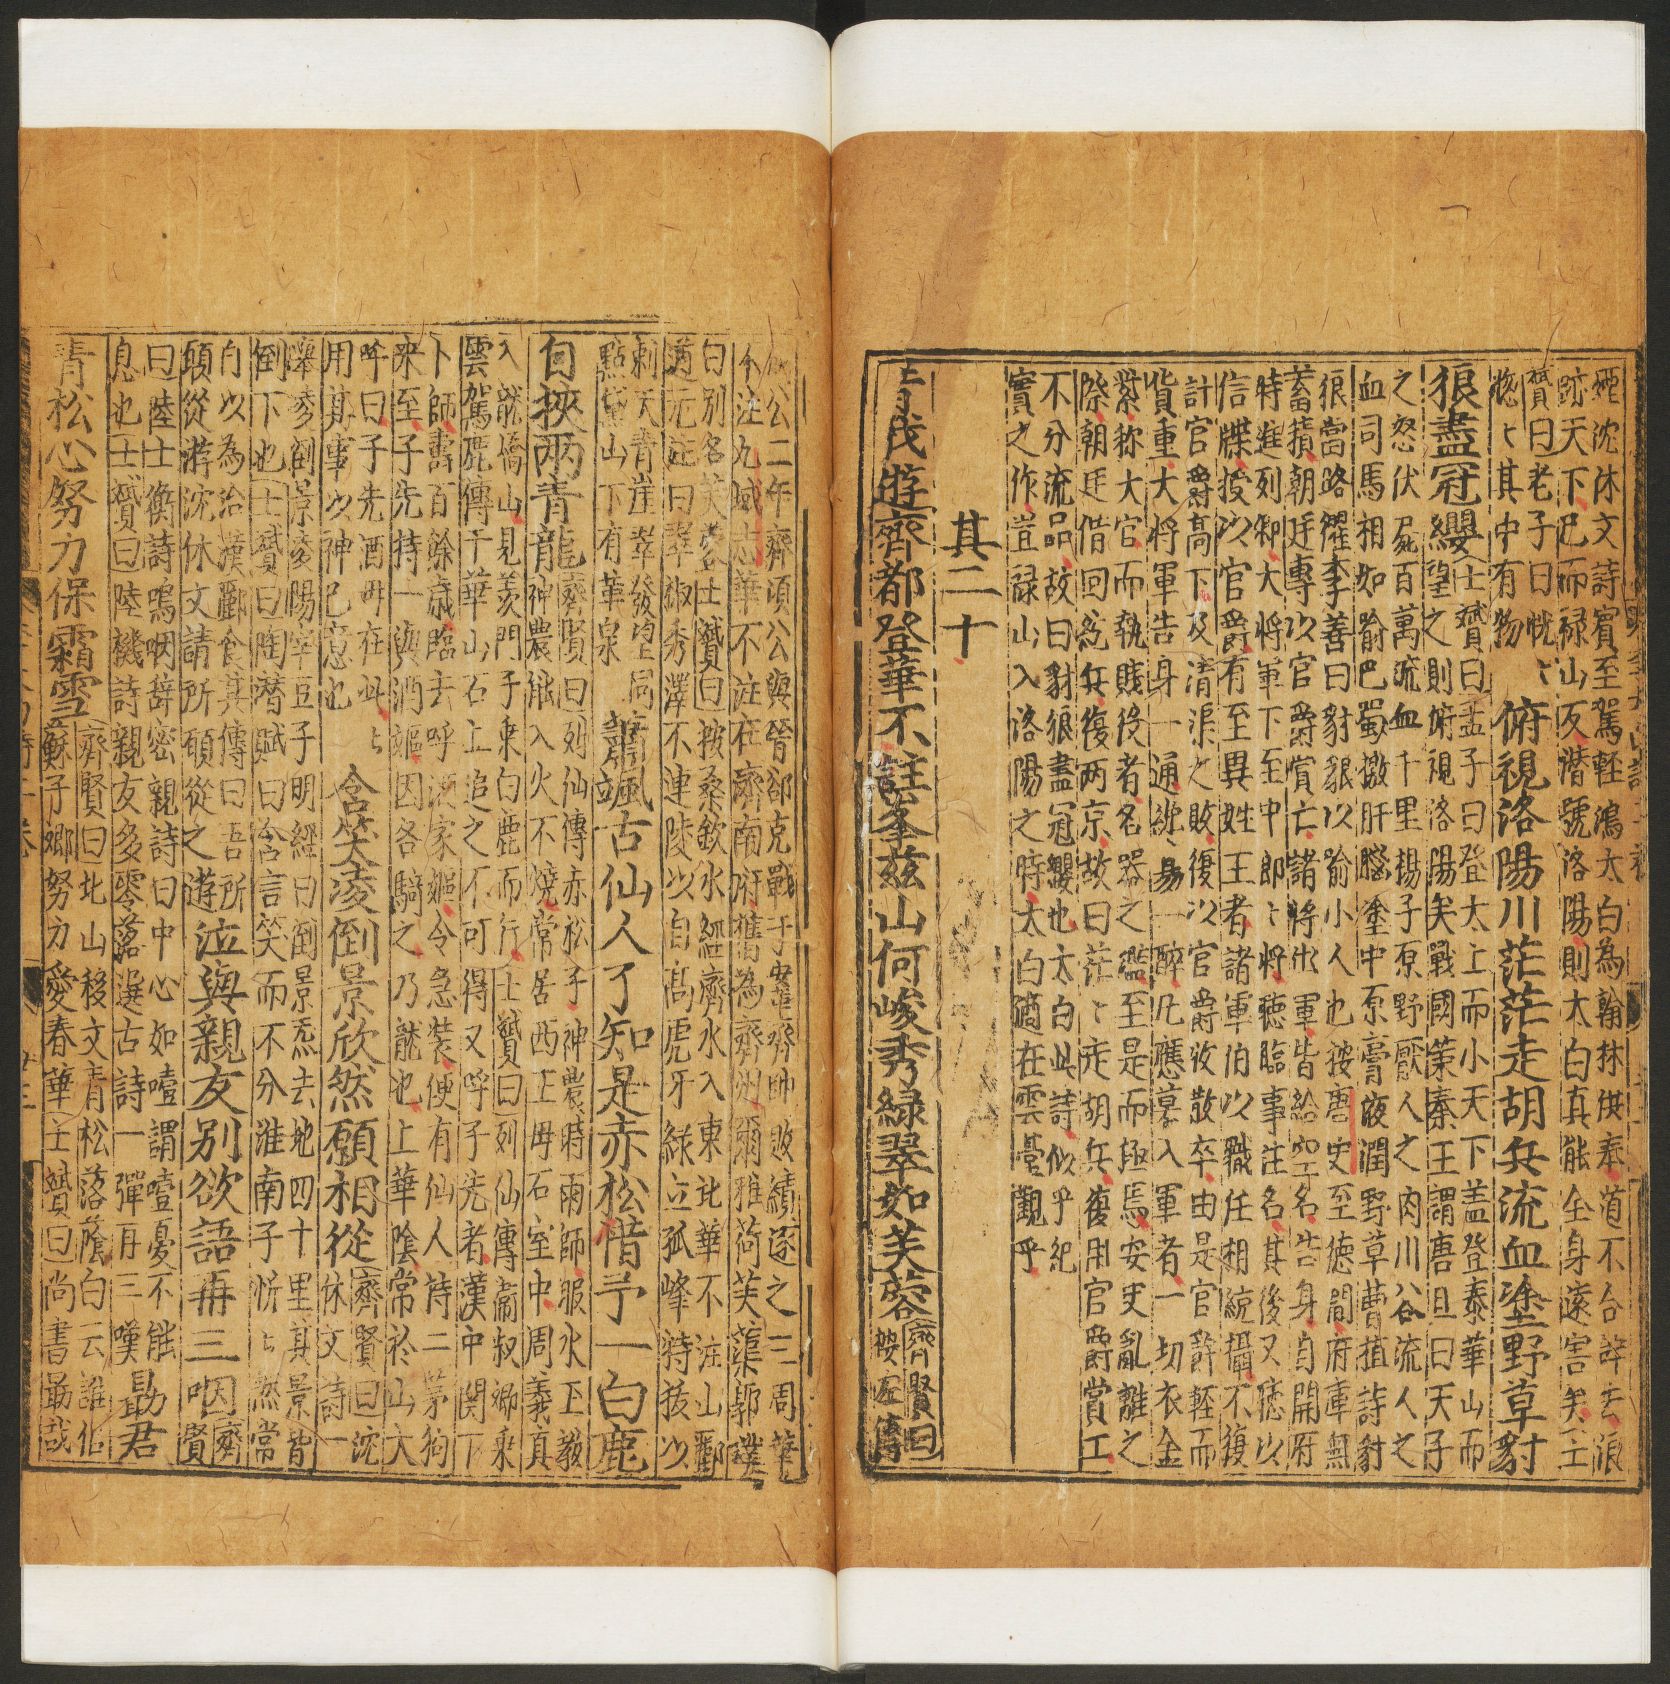 沈休文詩賓至駕輕鴻太白為翰林供奉道不合辞去浪
跡天下已而禄山反潜號洛陽則太白真能全身遠害矣士
贇曰老子曰恍々
惚々其中有物
俯視洛陽川茫茫走胡兵流血塗野草豺
狼盡冠纓
士贇曰孟子曰登太上而小天下盖登泰華山而
望之則俯視洛陽矣戰國策秦王謂唐且曰天子
之怒伏屍百萬流血千里揚子原野厭人之肉川谷流人之
血司馬相如喻巴蜀檄肝腦塗中原膏液潤野草曹植詩豺
狼當路衢李善曰豺貌以喻小人也按唐史至德間府庫無
蓄積朝廷專以官爵賞亡諸將出軍皆給空名告身自開府
特進列卿大將軍下至中郎々將聴臨事注名其後又聴以
信牒授以官爵有至異姓王者諸軍伯以職任相統攝不復
計官爵高下及清渠之敗復以官爵收散卒由是官爵輕而
貨重大將軍告身一通纔易一醉凡應募入軍者一切衣金
紫称大官而執賤役者名器之濫至是而極焉安史亂離之
際朝廷借回紇兵復两京故曰茫々走胡兵復用官爵賞工
不分流品故曰豺狼盡冠纓也太白此詩似乎紀
實之作豈禄山入洛陽之時太白適在雲臺觀乎
其二十
昔我遊齊都登華不註峯兹山何峻秀緑翠如芙蓉
齊賢曰
按左傳
成公二年齊頃公與晉郤克戰于鞌齊帥敗績逐之三周華
不注九域志華不注在齊南府舊為齊州爾雅荷芙蕖郭璞
曰別名芙蓉士贇曰按桑欽水經濟水入東北華不注山酈
道元註曰單椒秀澤不連陵以自高虎牙緑立孤峰特拔以
刺天青崖翠發望同
點黛山下有華泉
蕭颯古仙人了知是赤松借予一白鹿
自挾兩青龍
齊賢曰列仙傳赤松子神農時雨師服水玉教
神農能入火不燒常居西王母石室中周義真
入龍橋山見羨門子乗白鹿而行士贇曰列仙傳衞叔卿乗
雲駕鹿傳于華山石上追之不可得又呼子先者漢中関下
卜師壽百餘歲臨去呼酒家嫗令急装便有仙人持二茅狗
來至子先持一與酒嫗因各騎之乃龍也上華陰常於山大
呼曰子先酒母在此々
用其事以神已意也
含笑凌倒景欣然願相從
齊賢曰沈
休文詩一
舉凌倒景凌陽宰豆子明經曰倒景炁去地四十里其景皆
倒下也士贇曰陶潜賦曰含言笑而不分淮南子忻々然常
自以為治漢酈食其傳曰吾所
頋從游沈休文請所碩從之遊
泣與親友別欲語再三咽
齊
賢
曰陸士衡詩鳴咽辞密親詩曰中心如噎謂噎憂不能
息也士贇曰陸機詩親友多零落選古詩一彈再三嘆
勗君
青松心努力保霜雪
齊賢曰北山移文青松落䕃白云誰侣
蘇子卿努力愛春華士贇曰尚書勗哉